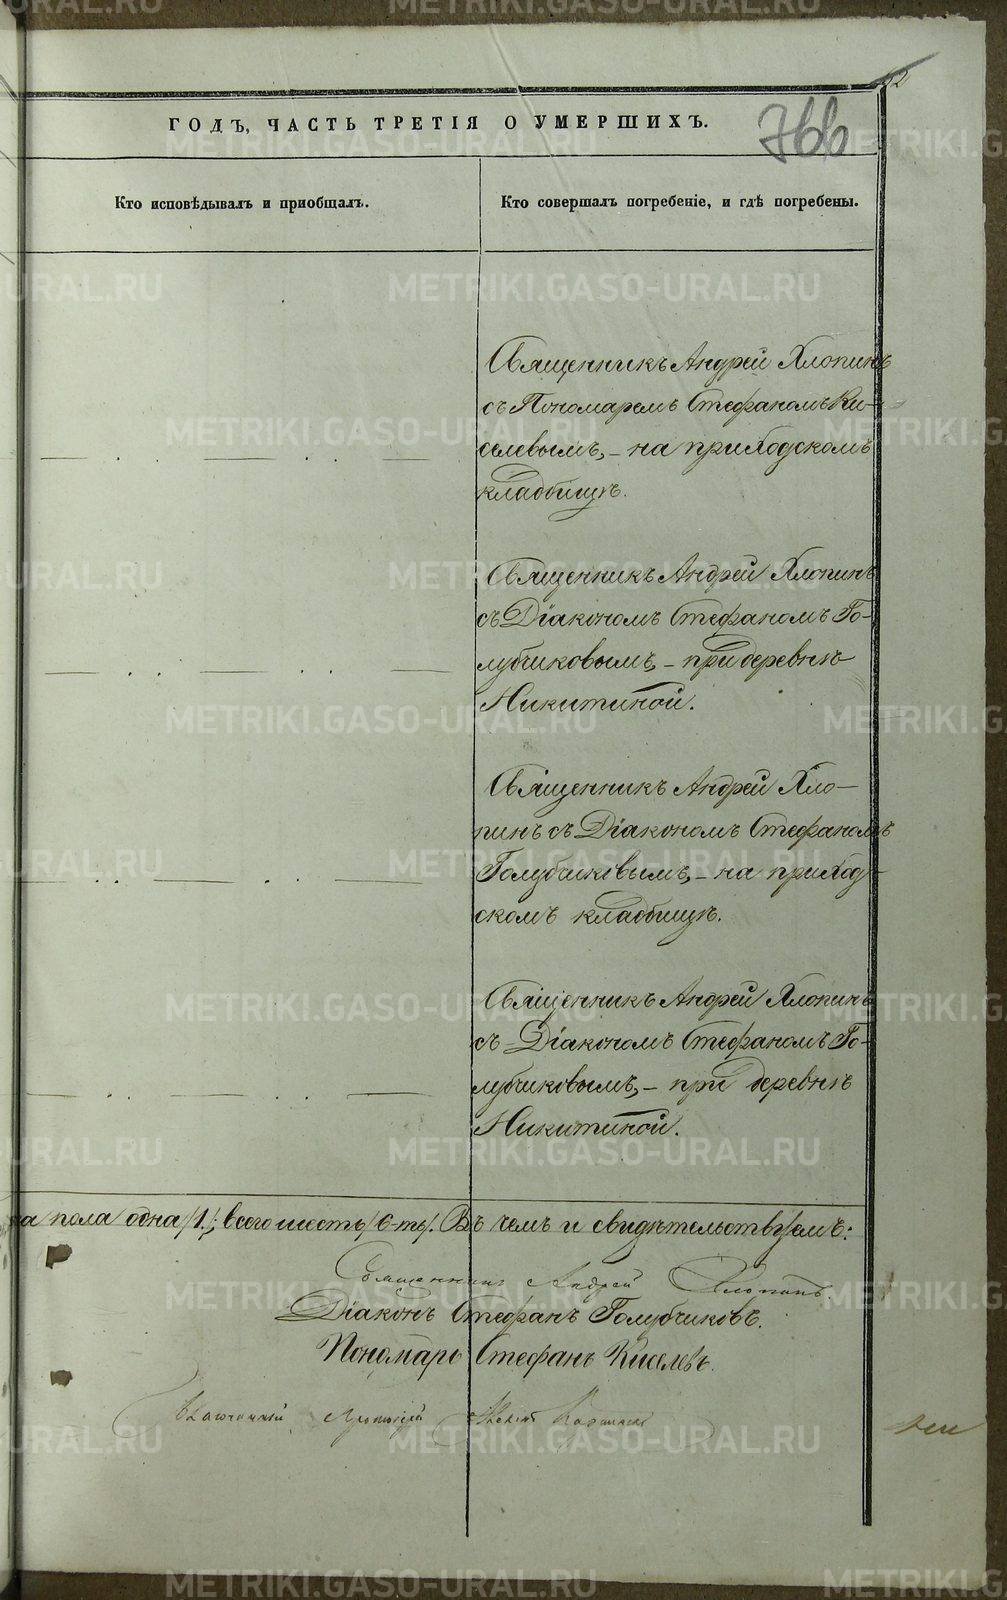 ГОДЪ, ЧАСТЬ ТРЕТІЯ О УМЕРШИХЪ.
766
Кто исповѣдывалъ и пріобщалъ.
Кто совершалъ погребеніе, и гдѣ погребены.
Священникъ Андрей Хлопинъ
съ Пономаремъ Стефаномъ Ки-
селевымъ, – на приходскомъ
кладбищѣ.
Священникъ Андрей Хлопинъ
съ Діакономъ Стефаномъ Го-
лубчиковымъ, – при деревнѣ
Никитиной.
Священникъ Андрей Хло-
пинъ съ Діакономъ Стефаномъ
Голубчиковымъ, – на приход-
скомъ кладбищѣ.
Священникъ Андрей Хлопинъ
съ Діакономъ Стефаномъ Го-
лубчиковымъ, – при деревнѣ
Никитиной.
пола одна /1./; всего шесть /6-ть/. Въ чемъ и свидѣтельствуемъ:
Священникъ Андрей Хлопинъ.
Діаконъ Стефанъ Голубчиковъ.
Пономарь Стефанъ Киселевъ.
METRIKI.GASO-URAL.RU